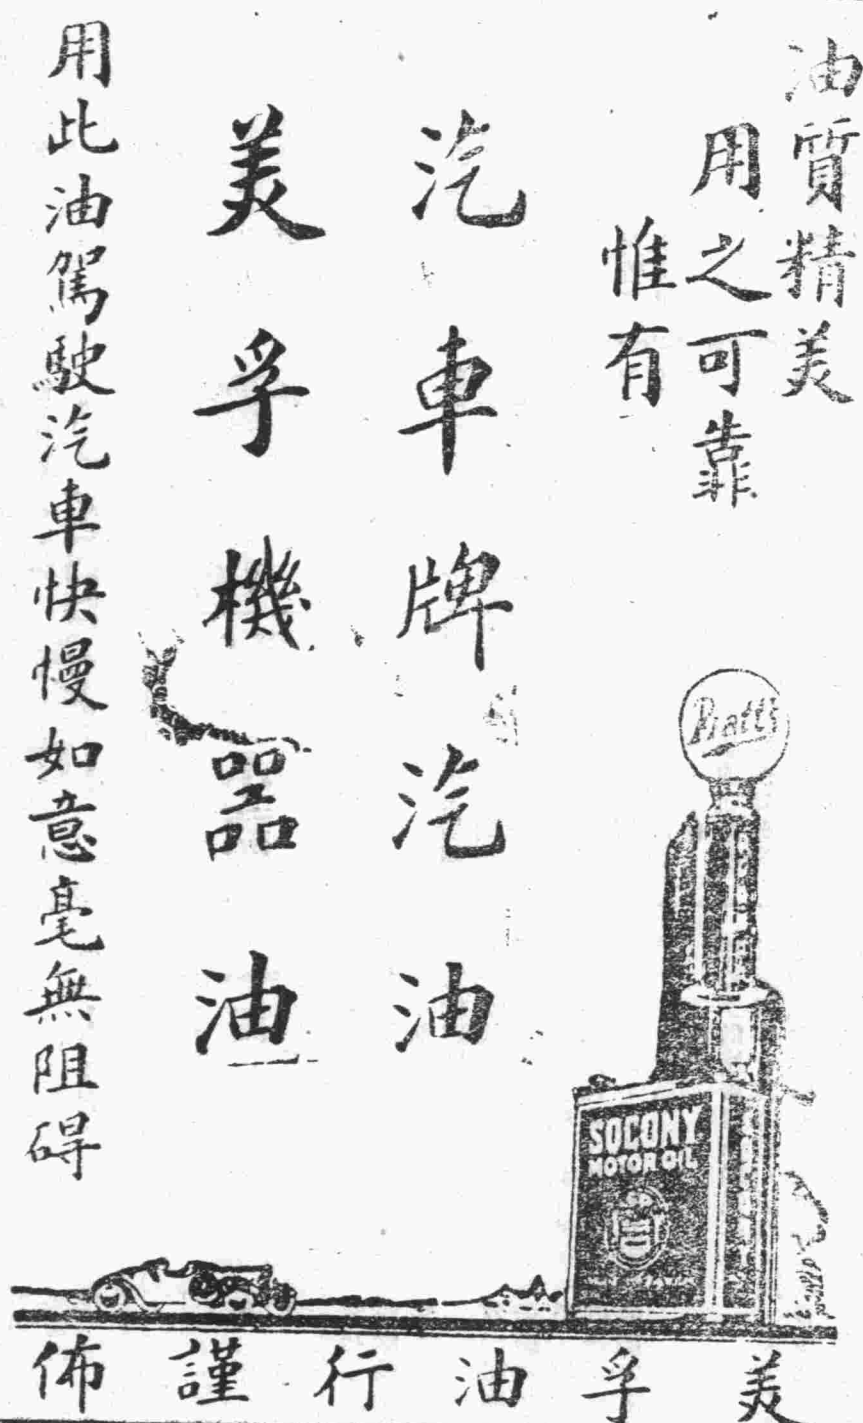 油質精美
用之可靠
惟有
汽車牌汽油
美孚機器油
用此油駕駛汽車快慢如意毫無阻碍
Pratt's
SOCONY
MOTOR OIL
美孚油行謹佈